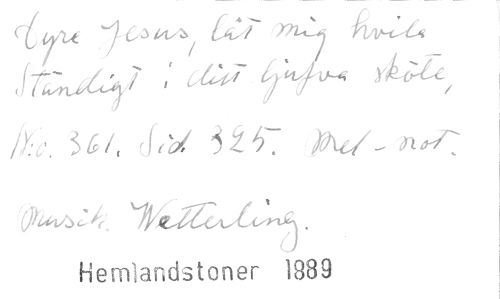 Dyre Jesus, låt mig hvila
Ständigt i ditt ljufva sköte,
No. 361. Sid. 325. Mel-not.
Musik. Wetterling.
Hemlandstoner 1889